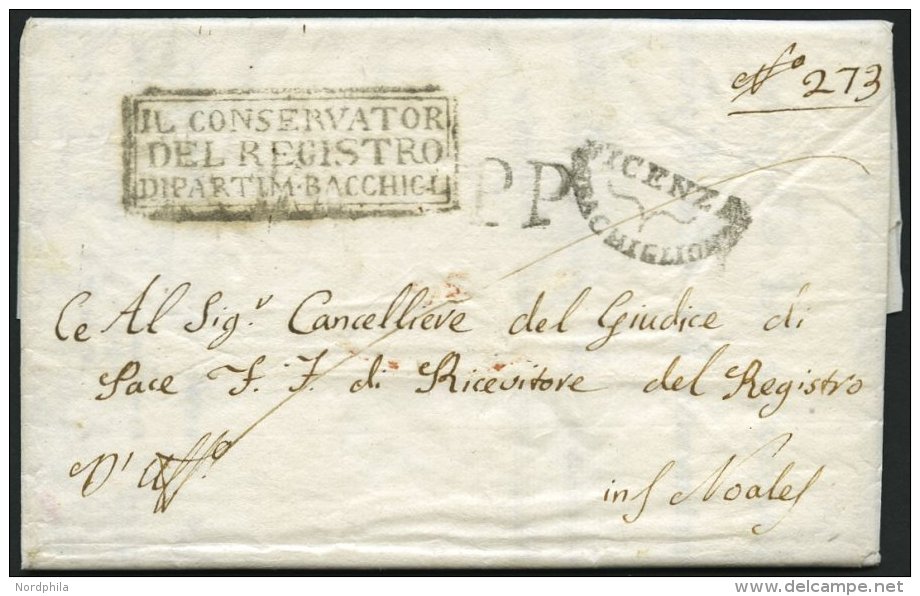 Nº 273
IL CONSERVATOR
DEL REGISTRO
DIPARTIM·BACCHIGL
P.P.
VICENZA
BACHIGLIONE
Ce Al Sig.r Cancelliere del Giudice di
Pace F. F. di Ricevitore del Registro
D' Uffº
in Noales
Nordphila
delcampe.net